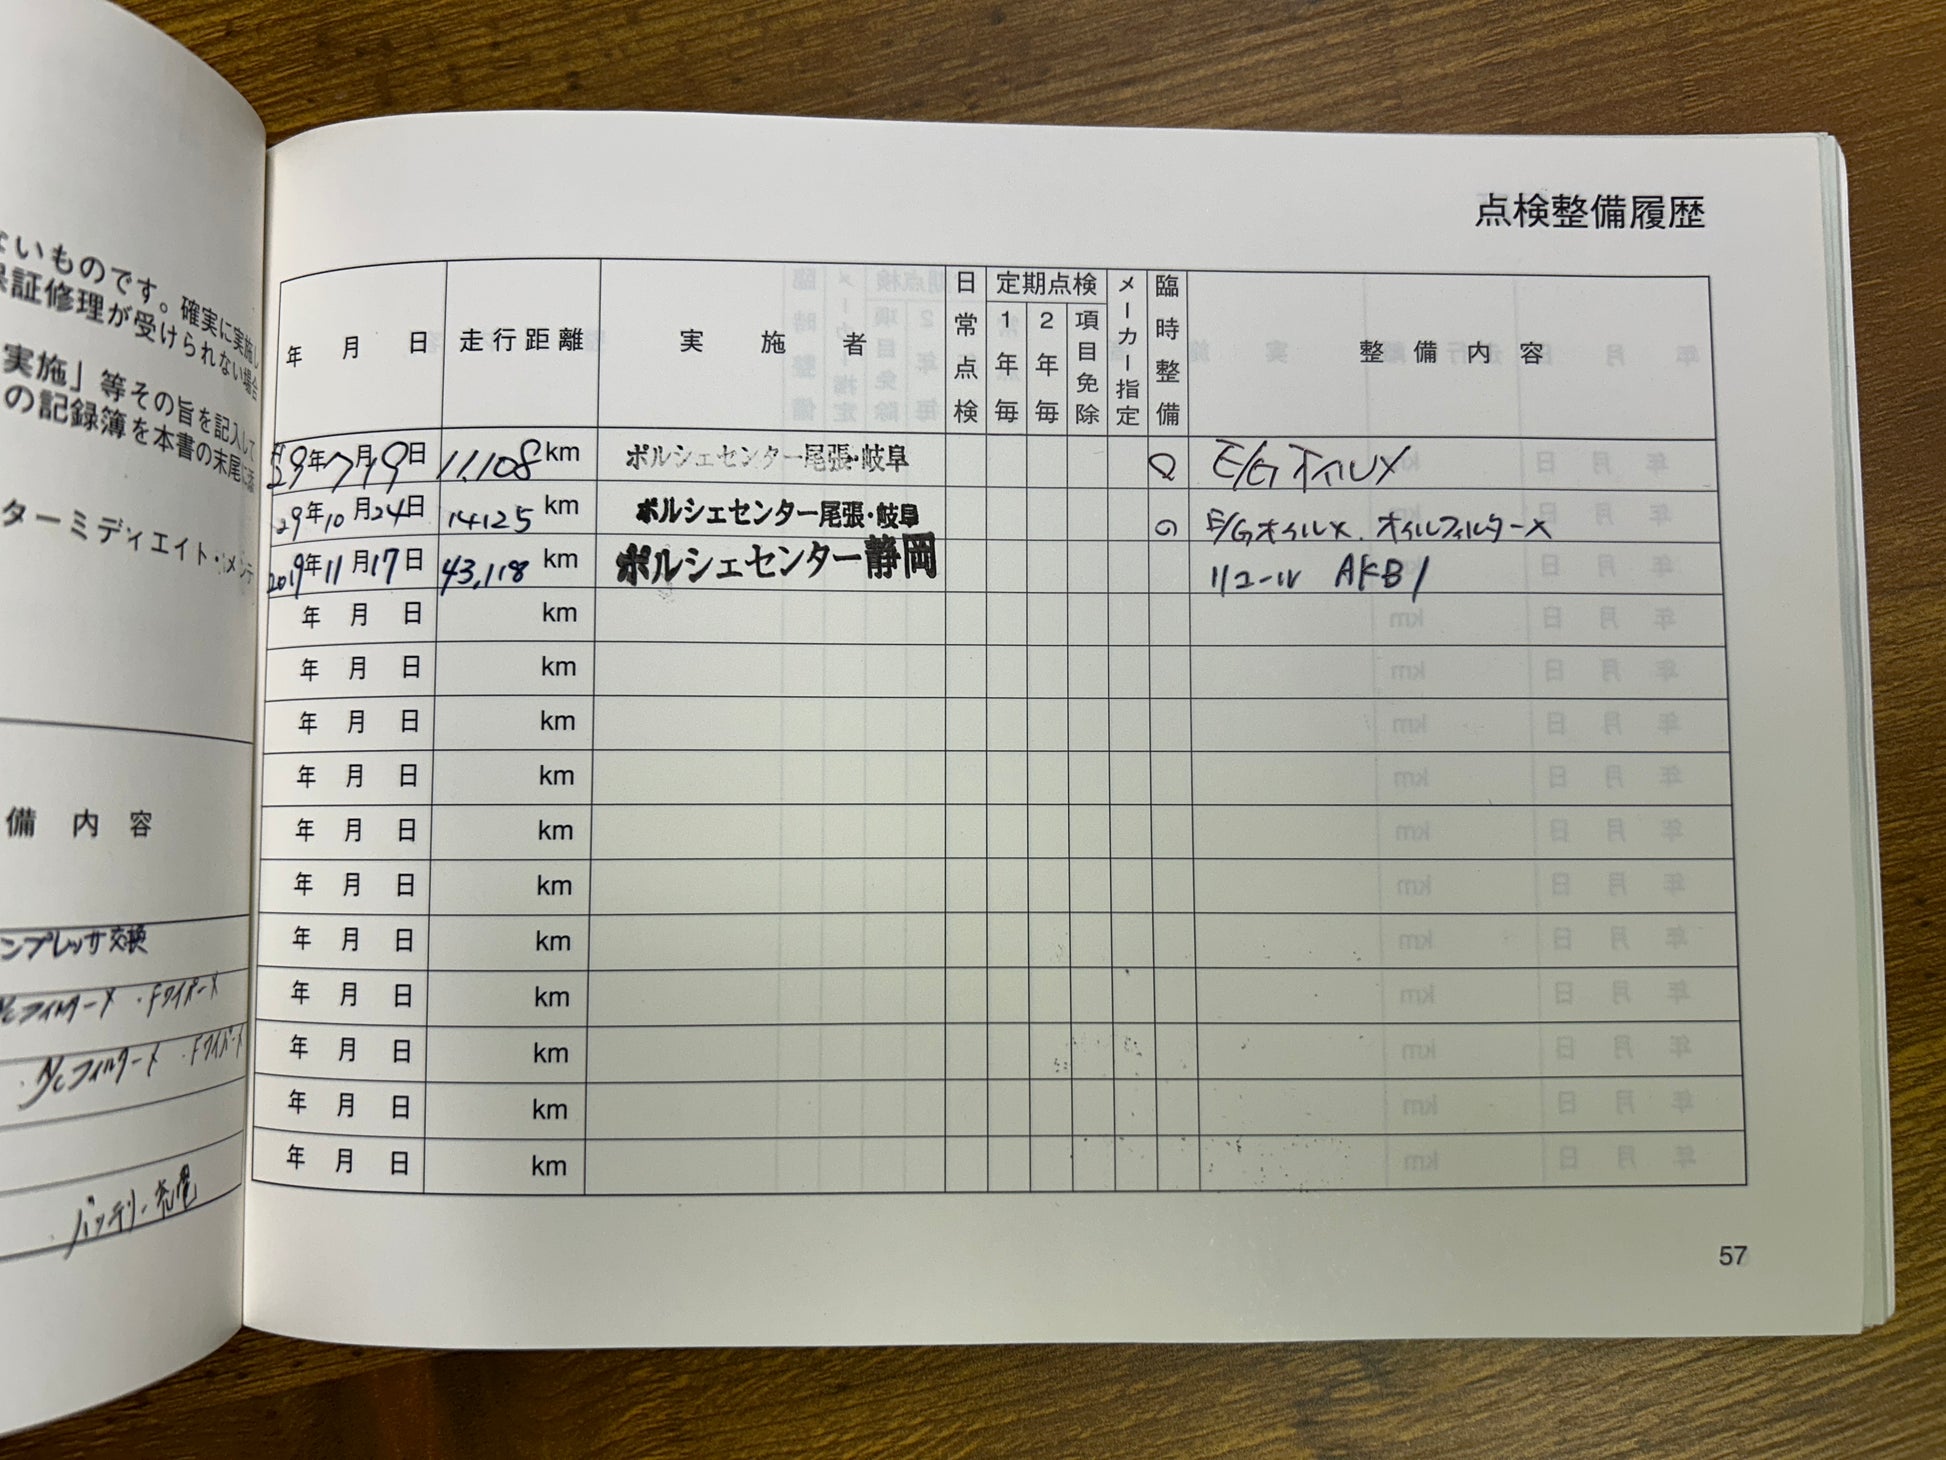 ないものです。確実に実施し
保証修理が受けられない場合
実施」等その旨を記入して
の記録簿を本書の末尾に
ターミディエイト・メンテ
備 内 容
ンプレッサ交換
A/Cフィルター〤 ・Fワイパー〤
・A/Cフィルター〤 ・Fワイパー〤
バッテリー充電
点検整備履歴
年 月 日 走行距離 実 施 者 日常点検 定期点検 1年毎 2年毎 項目免除 メーカー指定 臨時整備 整 備 内 容
29年7月19日 11,108km ポルシェセンター尾張・岐阜 E/Gオイル〤
29年10月24日 14125km ポルシェセンター尾張・岐阜 E/Gオイル〤. オイルフィルター〤
2019年11月17日 43,118km ポルシェセンター静岡 リコール AKB1
年 月 日 km
年 月 日 km
年 月 日 km
年 月 日 km
年 月 日 km
年 月 日 km
年 月 日 km
年 月 日 km
年 月 日 km
年 月 日 km
年 月 日 km
57